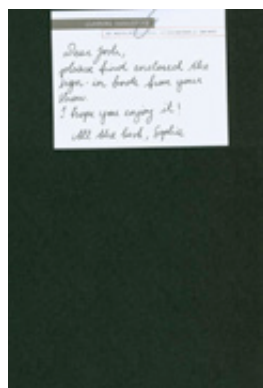 Dear Josh,
please find enclosed the
sign-in book from your
show.
I hope you enjoy it!
All the best, Sophie